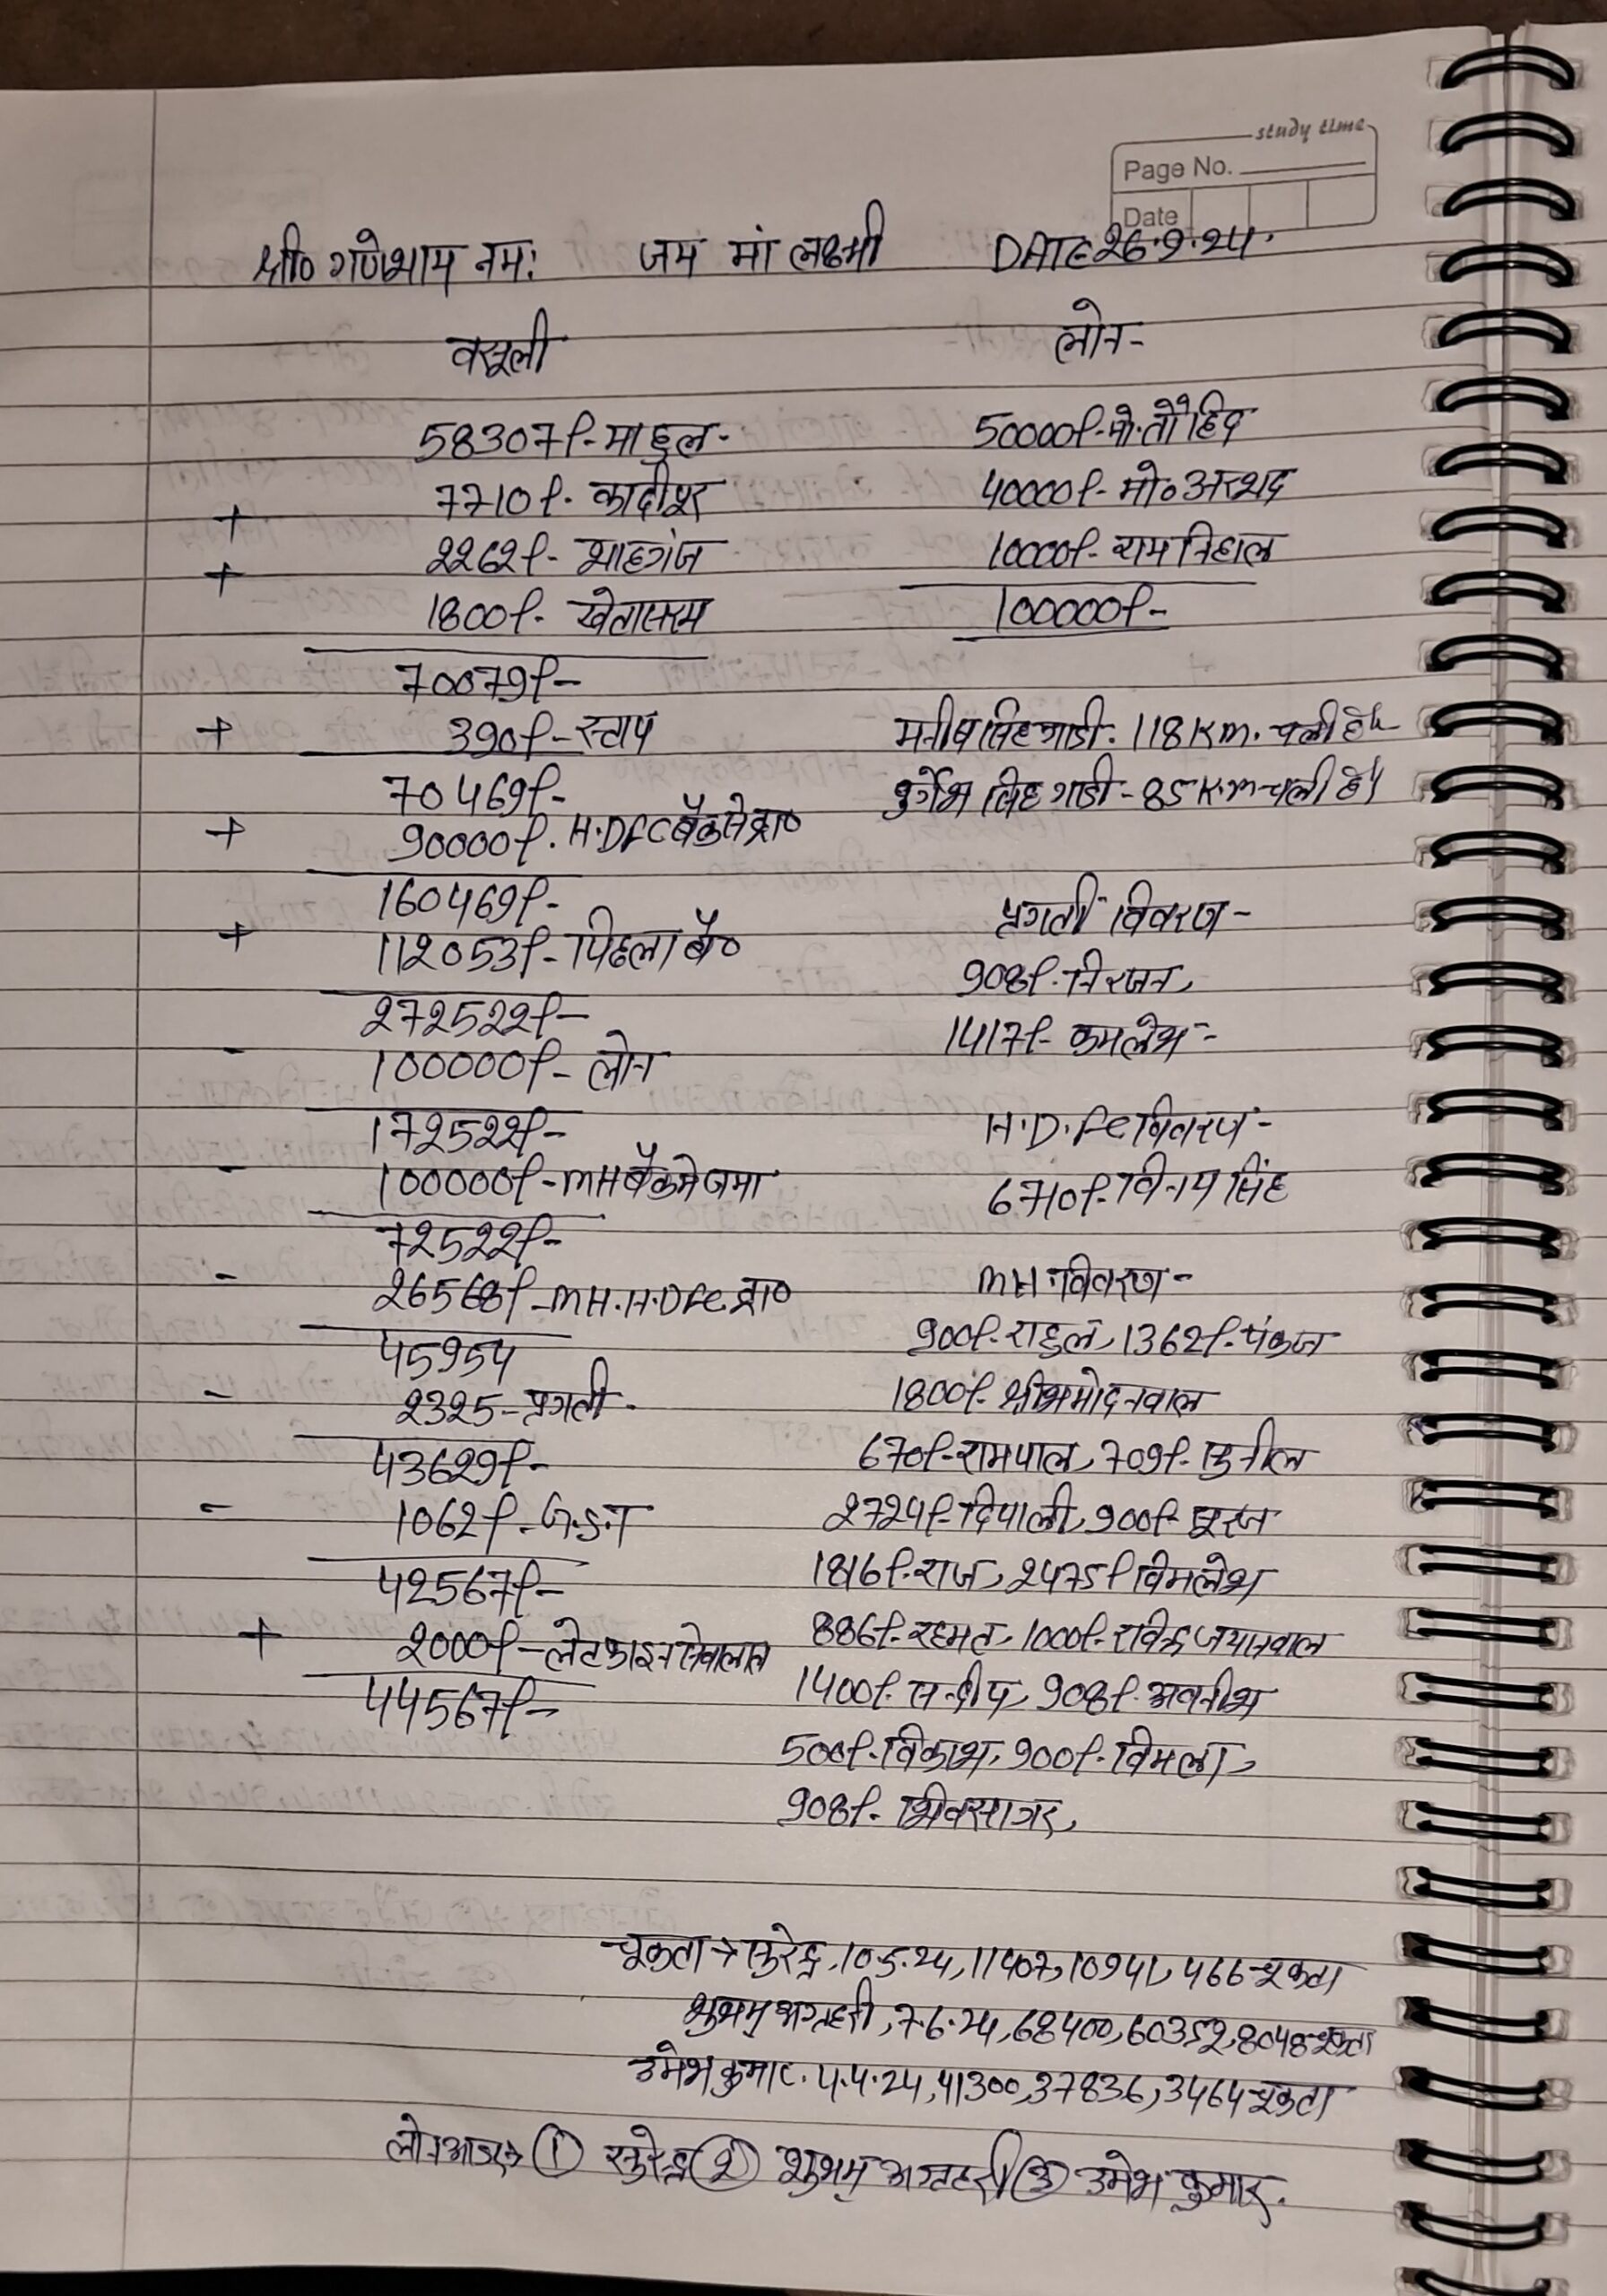 study time
Page No.
Date
श्री० गणेशाय नमः जय मां लक्ष्मी DATE 26.9.24.
वसूली
58307/- माहुल -
+ 7710/- कादीपुर
+ 2262/- शाहगंज
1800/- खेतासराय
70079/-
+ 390/- स्टाप
70469/-
+ 90000/- H.DFC बैंक से प्रा०
160469/-
+ 112053/- पिछला बै०
272522/-
- 100000/- लोन
172522/-
- 100000/- MH बैंक मे जमा
72522/-
- 26568/- MH.H.DFC. प्रा०
45954
- 2325 - प्रगती -
43629/-
- 1062/- G.S.T
42567/-
+ 2000/- लेट फाइन सेवालाल
44567/-
लोन-
50000/- मो. तौहिद
40000/- मो० अरशद
10000/- राम निहाल
100000/-
मनीष सिंह गाडी. 118 Km. चली है।
दुर्गेश सिंह गाडी - 85 K.m चली है।
प्रगती विवरण -
908/- निरजन,
1417/- कमलेश -
H.D.FC विवरण -
6710/- विनय सिंह
MH विवरण -
900/- राहुल, 1362/- पंकज
1800/- शीभ मोदनवाल
670/- रामपाल, 709/- सुनील
2724/- दिपाली, 900/- सूरज
1816/- राज, 2475/- विमलेश
886/- रहमत, 1000/- रविन्द्र जयसवाल
1400/- सन्दीप, 908/- अवनीश
500/- विकाश, 900/- विमला,
908/- शिवसागर,
चूकता → सुरेन्द्र, 10.5.24, 11407, 10941, 466 चूकता
शुभम अग्रहरी, 7.6.24, 68400, 60352, 8048 चूकता
उमेश कुमार. 4.4.24, 41300, 37836, 3464 चूकता
लोन आडर → ① सुरेन्द्र ② शुभम अग्रहरी ③ उमेश कुमार.